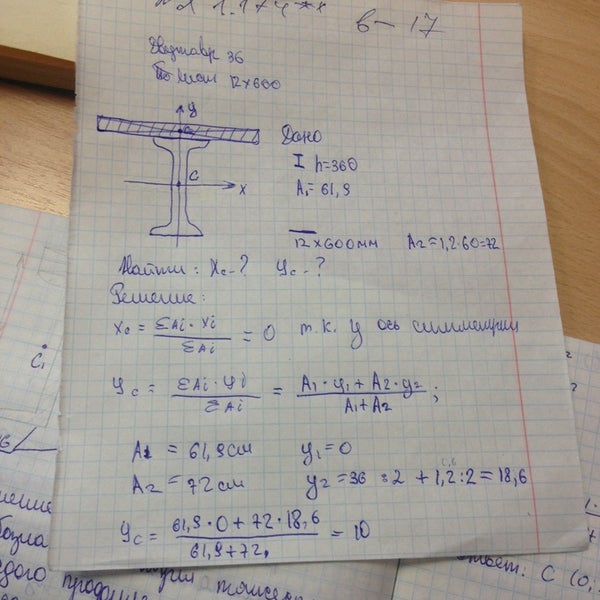 в – 17
Двутавр 36
12×600
y
C
x
Дано
I h=360
A₁= 61,9
12×600мм A₂=1,2·60=72
Найти: Xc-? Yc-?
Решение:
Xc = ΣAi·Xi / ΣAi = 0 т.к. y ось симметрии
Yc = ΣAi·yi / ΣAi = A₁·y₁+A₂·y₂ / A₁+A₂ ;
A₁ = 61,9см y₁=0
A₂ = 72см y₂=36:2+1,2:2=18,6
Yc = 61,9·0+72·18,6 / 61,9+72, = 10
C₁
Ответ: C (0;